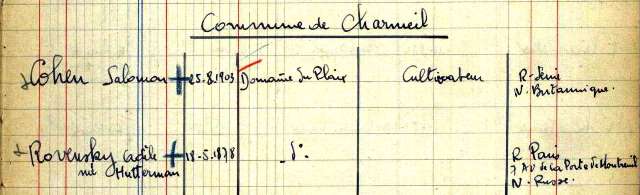 Commune de Charmeil
Cohen Salomon + 25.8.1903 Domaine du Plaix Cultivateur R - 
N. Britannique.
Rovensky Cécile + 18-5.1878 - d°- R Paris
née Hutterman 7 Av de la Porte de Montreuil
N - Russe.